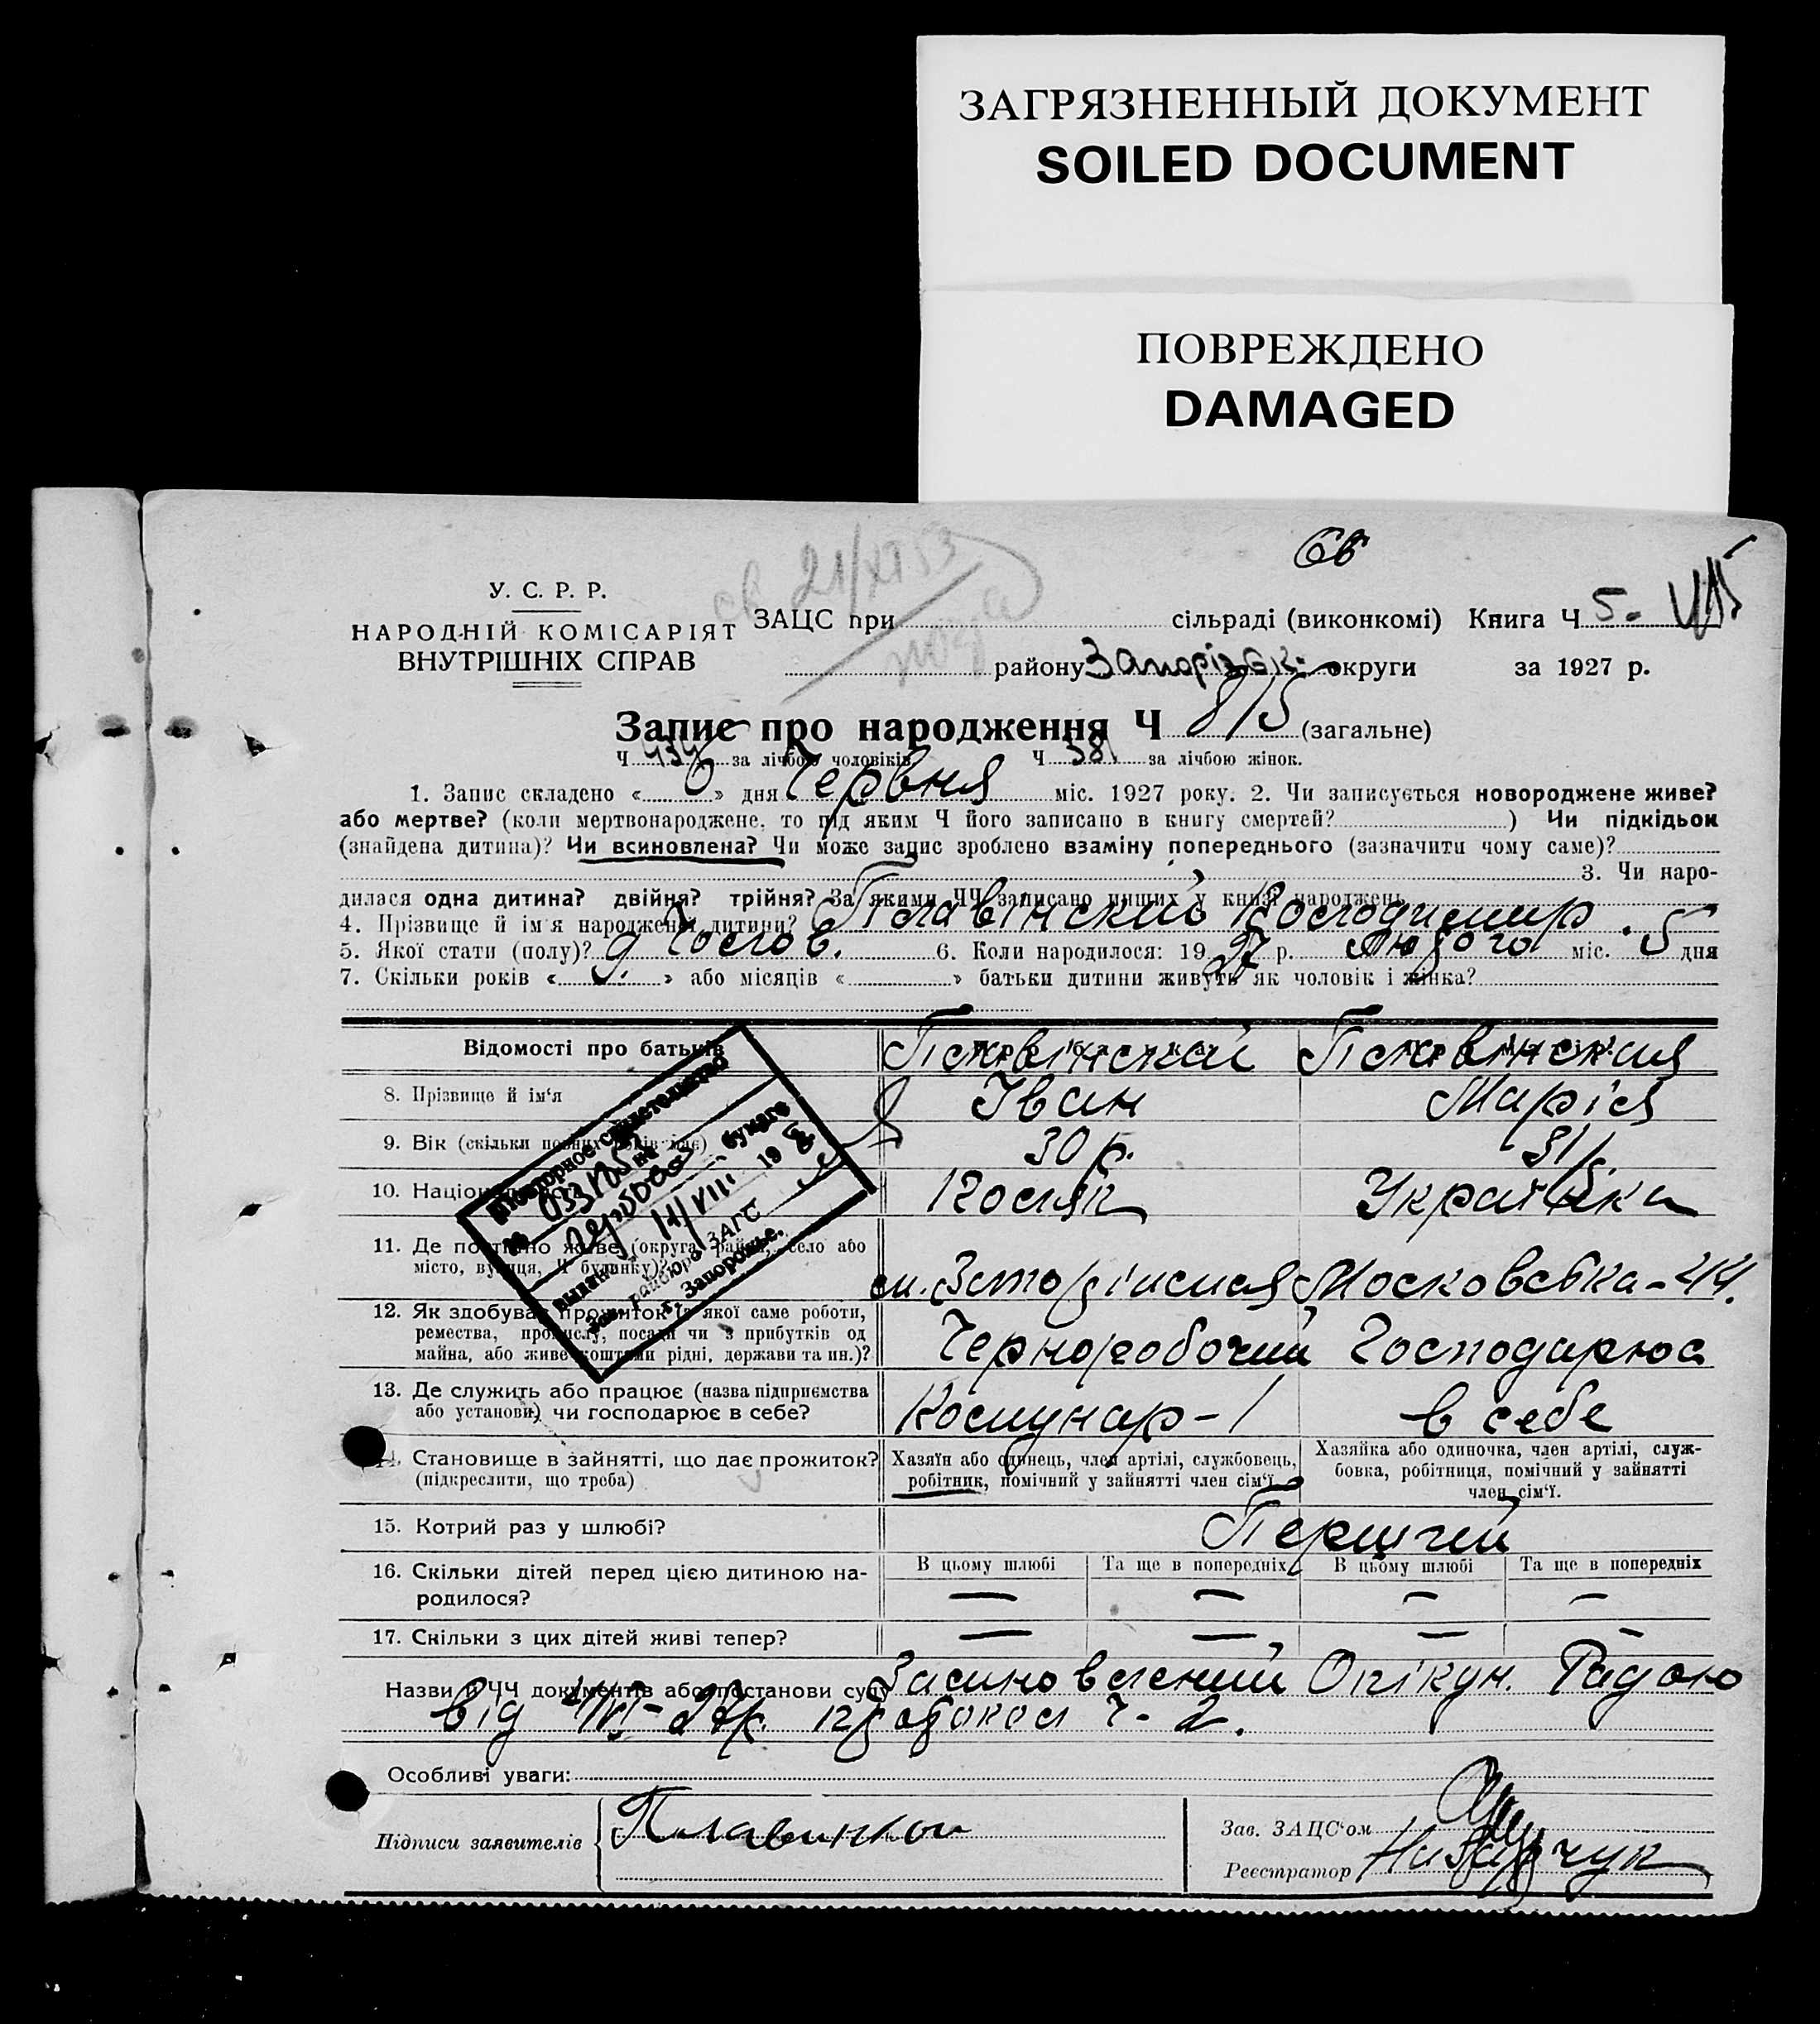 ЗАГРЯЗНЕННЫЙ ДОКУМЕНТ
SOILED DOCUMENT
ПОВРЕЖДЕНО
DAMAGED
св
У. С. Р. Р.
НАРОДНІЙ КОМІСАРІЯТ
ВНУТРІШНІХ СПРАВ
ЗАЦС при сільраді (виконкомі) Книга Ч 5.
району Запорізьк. округи за 1927 р.
Запис про народження Ч 815 (загальне)
Ч 434 за лічбою чоловіків Ч 381 за лічбою жінок.
1. Запис складено « 6 » дня Червня міс. 1927 року. 2. Чи записується новороджене живе?
або мертве? (коли мертвонароджене, то під яким Ч його записано в книгу смертей? ) Чи підкідьок
(знайдена дитина)? Чи всиновлена? Чи може запис зроблено взаміну попереднього (зазначити чому саме)?
3. Чи наро-
дилася одна дитина? двійня? трійня? За якими ЧЧ записано инших у книзі народжень
4. Прізвище й ім'я народженої дитини? Плавінский Володимир
5. Якої стати (полу)? Чолов. 6. Коли народилося: 19 27 р. Лютого міс. 5 дня
7. Скільки років « » або місяців « » батьки дитини живуть як чоловік і жінка?
Відомості про батьків Плавінский Плавінская
8. Прізвище й ім'я Іван Марія
9. Вік (скільки повних років має) 30 р. 31 р.
10. Національність Поляк Українка
11. Де постійно живе (округа, район, село або
місто, вулиця, Ч будинку)? Московська-44.
12. Як здобуває прожиток та якої саме роботи,
ремества, промислу, посади чи з прибутків од
майна, або живе коштами рідні, держави та ин.)? Чернробочий Господарює
13. Де служить або працює (назва підприємства
або установи) чи господарює в себе? Комунар-1 в себе
14. Становище в зайнятті, що дає прожиток?
(підкреслити, що треба)
Хазяїн або одинець, член артілі, службовець,
робітник, помічний у зайнятті член сім'ї
Хазяйка або одиночка, член артілі, служ-
бовка, робітниця, помічний у зайнятті
член сім'ї.
15. Котрий раз у шлюбі? Перший
16. Скільки дітей перед цією дитиною на-
родилося?
В цьому шлюбі Та ще в попередніх В цьому шлюбі Та ще в попередніх
— — — —
17. Скільки з цих дітей живі тепер? — — — —
Назви й ЧЧ документів або постанови суду Засиновлений Опікун. Радою
від протокол Ч- 2.
Особливі уваги:
Підписи заявителів Плавинской
Зав. ЗАЦС'ом
Реєстратор Назарчук
Повторное свидетельство
на гербовой бумаге
выдано VIII 19
Зав. райбюро ЗАГС
г. Запорожье.